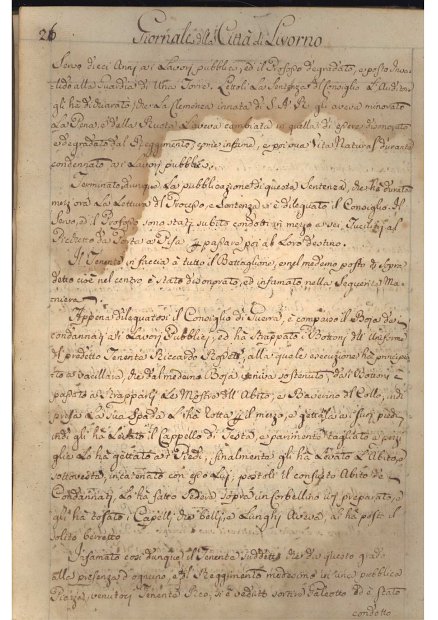 26 Giornale della Città di Livorno
Servo dieci Anni ai Lavori pubblici, ed il Profosso degradato, e posto
alla Guardia di Una Torre. Lettoli La Sentenza di Consiglio L'
gli ha dichiarato, che La Clemenza innata di S. A. R. gli aveva minorato
La Pena, e della Ruota L'aveva cambiata in quella di essere disonorato
e degradato dal Reggimento, come infame, e sua Vita Natural durante
condannato ai Lavori pubblici.
Terminata dunque La pubblicazione di questa Sentenza, che ha durato
mezz'ora La Lettura di Processo, e Sentenza si è dileguato il Consiglio. Il
Servo, ed il Profosso sono stati subito condotti in mezzo a sei Fucilieri al
da Porta a Pisa p passare poi al Loro destino.
Il Tenente in faccia à tutto il Battaglione, e nel medemo posto di sopra
detto cioè nel centro è stato disonorato, ed infamato nella seguente Ma
niera.
Appena dileguatosi il Consiglio di Guerra, è comparso il Boja de
condannati ai Lavori Pubblici, ed hà strappato i Bottoni dell' Uniforme
del predetto Tenente Riccardo alla quale esecuzione hà principi
ato a vacillare, che dal medemo Boja veniva sostenuto, dai Bottoni è
passato a strappargli Le Mostre dell' Abito, e Bavarino del Collo, indi
presa La sua Spada L'hà rotta p il mezzo, e gettata a' suoi piedi,
indi gli hà Levato il Cappello di Testa, e parimente tagliato a pezzi
glie Lo hà gettato ai Piedi, finalmente gli hà Levato L'Abito, e
sottoveste, incatenato con esso Lui, postoli il consueto Abito de
Condannati, Lo hà fatto sedere sopra un Sorbello ivi preparato, e
gli hà tosato i Capelli che belli, e Lunghi Aveva, ed hà posto il
solito berretto
Infamato così dunque il Tenente suddetto che da questo grado
alla presenza d'ognuno, e del Reggimento medesimo in una pubblica
Piazza, Tenente Rico, si è veduto sortire Galeotto ed è stato
condotto